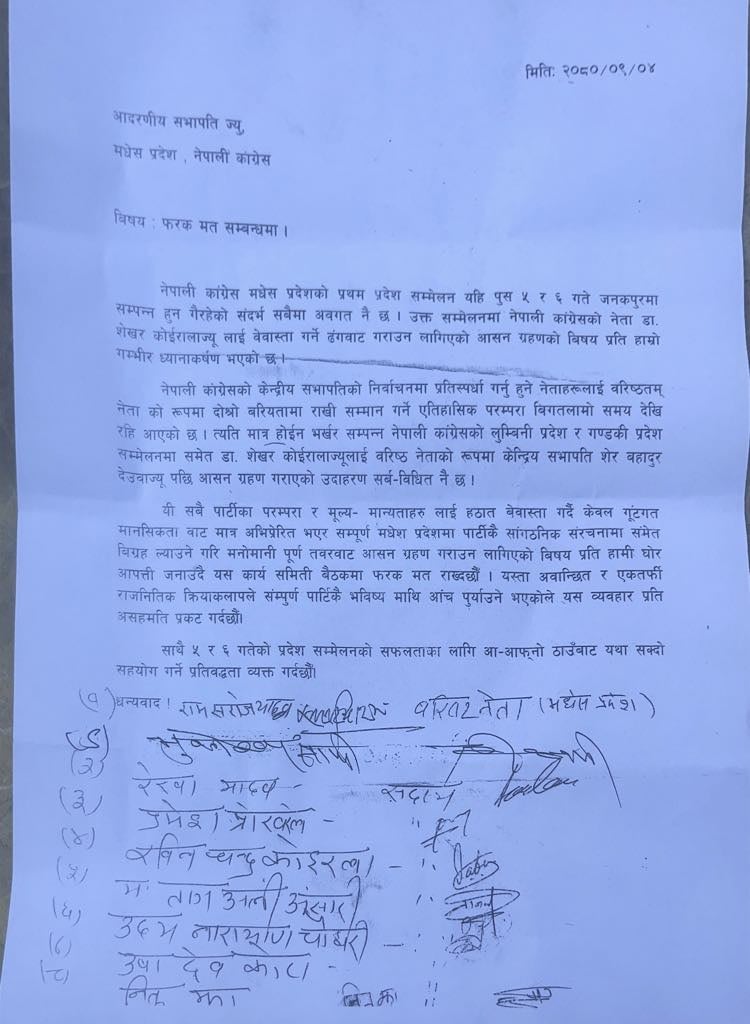 मितिः २०८०/०९/०४
आदरणीय सभापति ज्यु,
मधेस प्रदेश , नेपाली कांग्रेस
विषय : फरक मत सम्बन्धमा ।
नेपाली कांग्रेस मधेस प्रदेशको प्रथम प्रदेश सम्मेलन यहि पुस ५ र ६ गते जनकपुरमा
सम्पन्न हुन गैरहेको संदर्भ सबैमा अवगत नै छ । उक्त सम्मेलनमा नेपाली कांग्रेसको नेता डा.
शेखर कोईरालाज्यू लाई बेवास्ता गर्ने ढंगवाट गराउन लागिएको आसन ग्रहणको बिषय प्रति हाम्रो
गम्भीर ध्यानाकर्षण भएको छ ।
नेपाली कांग्रेसको केन्द्रीय सभापतिको निर्वाचनमा प्रतिस्पर्धा गर्नु हुने नेताहरूलाई वरिष्ठतम्
नेता को रूपमा दोश्रो बरियतामा राखी सम्मान गर्ने एतिहासिक परम्परा बिगतलामो समय देखि
रहि आएको छ । त्यति मात्र होईन भर्खर सम्पन्न नेपाली कांग्रेसको लुम्विनी प्रदेश र गण्डकी प्रदेश
सम्मेलनमा समेत डा. शेखर कोईरालाज्यूलाई वरिष्ठ नेताको रूपमा केन्द्रिय सभापति शेर वहादुर
देउवाज्यू पछि आसन ग्रहण गराएको उदाहरण सर्व-विधित नै छ ।
यी सबै पार्टीका परम्परा र मूल्य- मान्यताहरु लाई हठात बेवास्ता गर्दै केवल गूंटगत
मानसिकता वाट मात्र अभिप्रेरित भएर सम्पूर्ण मधेश प्रदेशमा पार्टीकै सांगठनिक संरचनामा संमेत
विग्रह ल्याउने गरि मनोमानी पूर्ण तवरवाट आसन ग्रहण गराउन लागिएको बिषय प्रति हामी घोर
आपत्ती जनाउँदै यस कार्य समिती बैठकमा फरक मत राख्दछौं । यस्ता अवान्छित र एकतर्फी
राजनितिक क्रियाकलापले संम्पुर्ण पार्टिकै भविष्य माथि आंच पुर्याउने भएकोले यस व्यवहार प्रति
असहमति प्रकट गर्दछौं।
साथै ५ र ६ गतेको प्रदेश सम्मेलनको सफलताका लागि आ-आफ्नो ठाउँवाट यथा सक्दो
सहयोग गर्ने प्रतिवद्धता व्यक्त गर्दछौं।
धन्यवाद ! रामसरोज यादव वरिष्ठ नेता (मधेस प्रदेश)
(२) रेखा यादव - सदस्य
(३) उमेश
(४) चन्द्र कोइराला - "
(५) अली अंसारी "
(६) उदय नारायण चौधरी - "
उषा देवकोटा - "
झा "